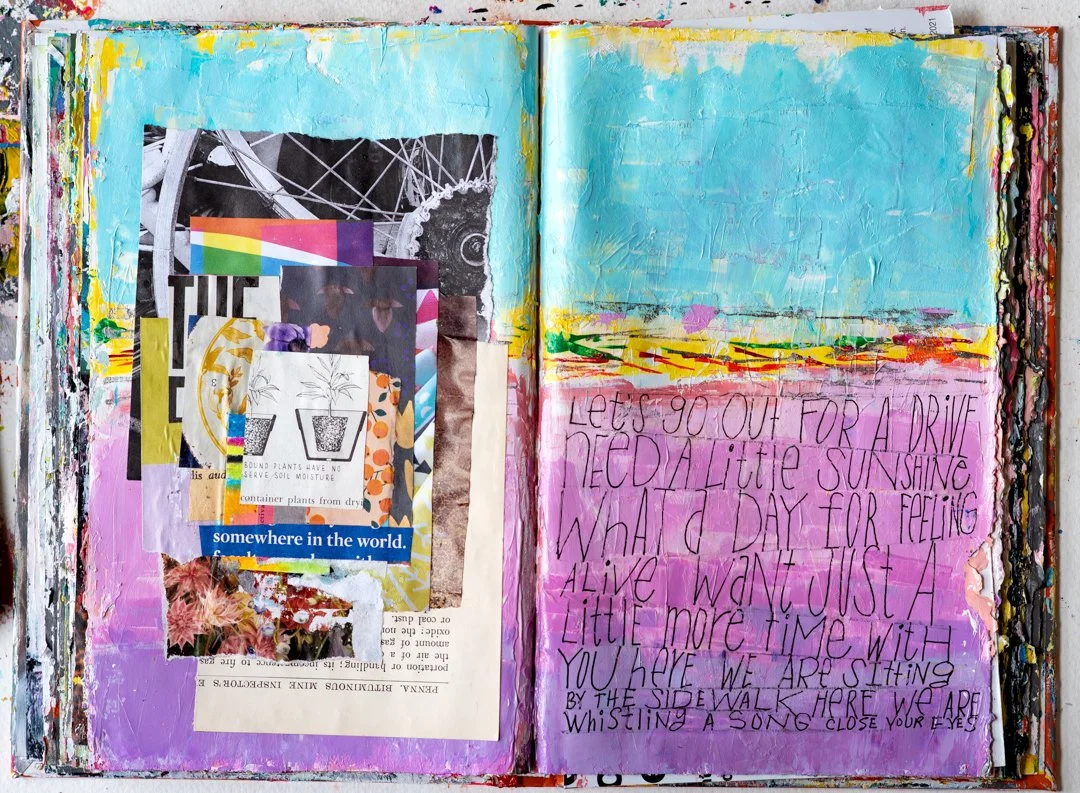 2021
THE
lis aud
BOUND PLANTS HAVE NO
SERVE SOIL MOISTURE
container plants from dryi
somewhere in the world.
PENNA. BITUMINOUS MINE INSPECTOR'S E
portation or handling; its
the air of a
amount of gas
oxide; the nor
or coal dust.
Let's go OUt FOR A DRIVE
NEED A LittlE SUNSHINE
WhAT a DAY foR FEELiNG
ALiVE I WANt JUSt A
LittLE more time With
YOU hERE WE ARE SITtiNg
BY THE SIDEWALK HERE WE ARE
WhiSTLiNg A SONG CLOSE YOUR EYES